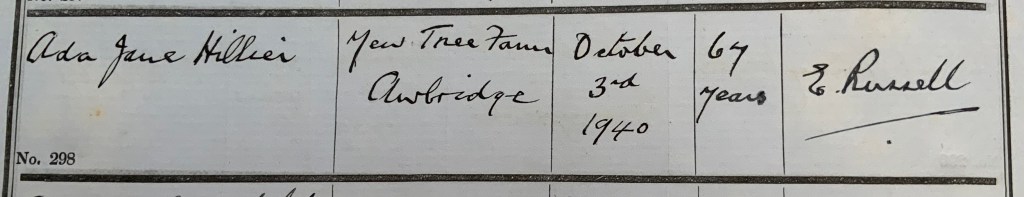 Ada Jane Hillier
Yew Tree Farm
Awbridge
October
3rd
1940
67
years
E. Russell
No. 298